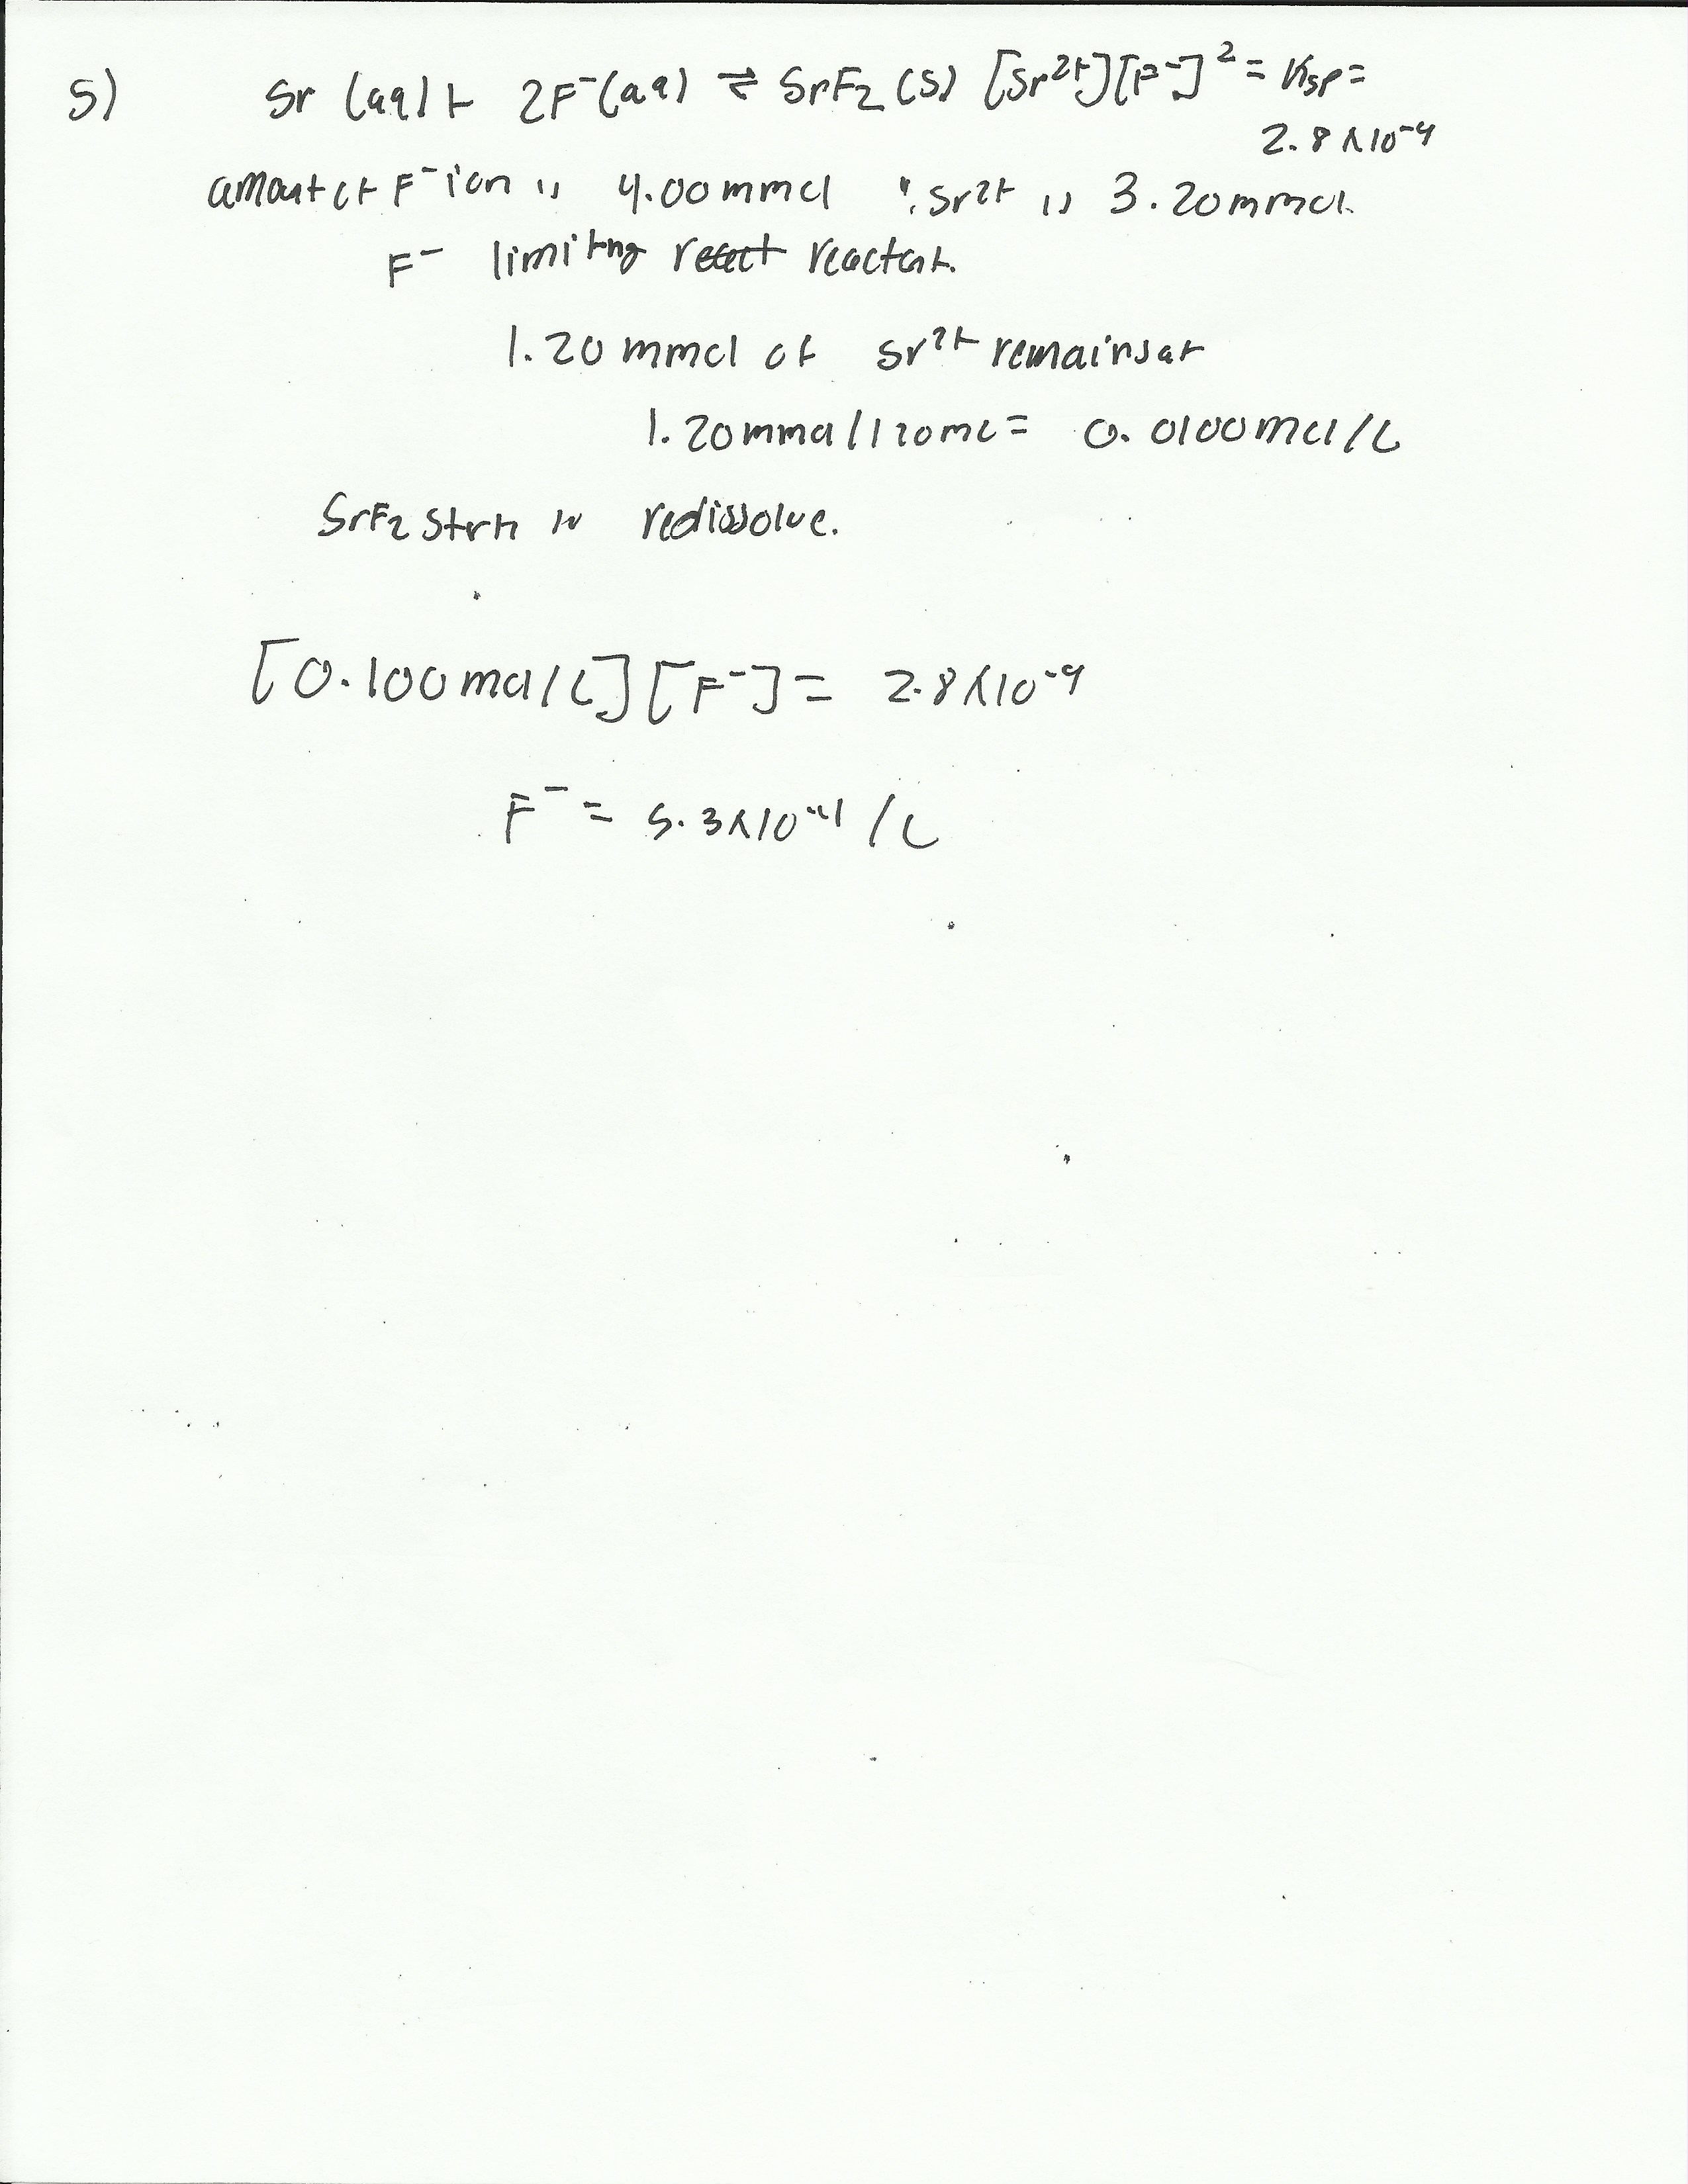 5) Sr (aq) + 2F⁻(aq) ⇌ SrF₂ (s) [Sr²⁺][F⁻]² = Ksp =
2.8 x10⁻⁹
amount of F⁻ ion is 4.00 mmol ; Sr²⁺ is 3.20 mmol.
F⁻ limiting reactant.
1.20 mmol of Sr²⁺ remains at
1.20 mmol / 120 mL = 0.0100 mol/L
SrF₂ to redissolve.
[0.100 mol/L][F⁻] = 2.8 x10⁻⁹
F⁻ = 5.3x10⁻⁴ /L